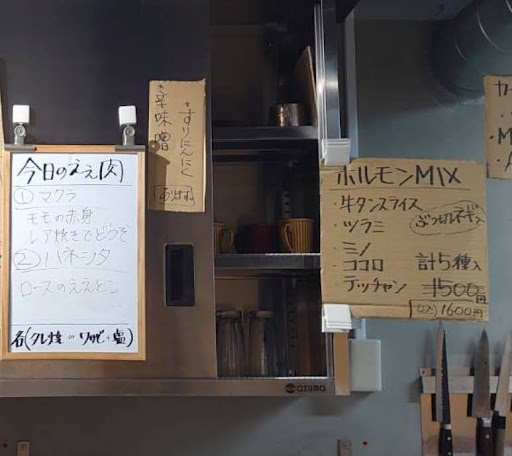 今日のええ肉
① マクラ
モモの赤身
レア焼きでどうぞ
② ハネシタ
ロースのええとこ
各(タレ焼 or ワサビ+塩)
・辛味噌
・すりにんにく
あります
ホルモンMIX
・牛タンスライス
・ツラミ
・ミノ
・ココロ
・テッチャン
計5種入
1500円
(税込)1600円
カ
M
A
azuma